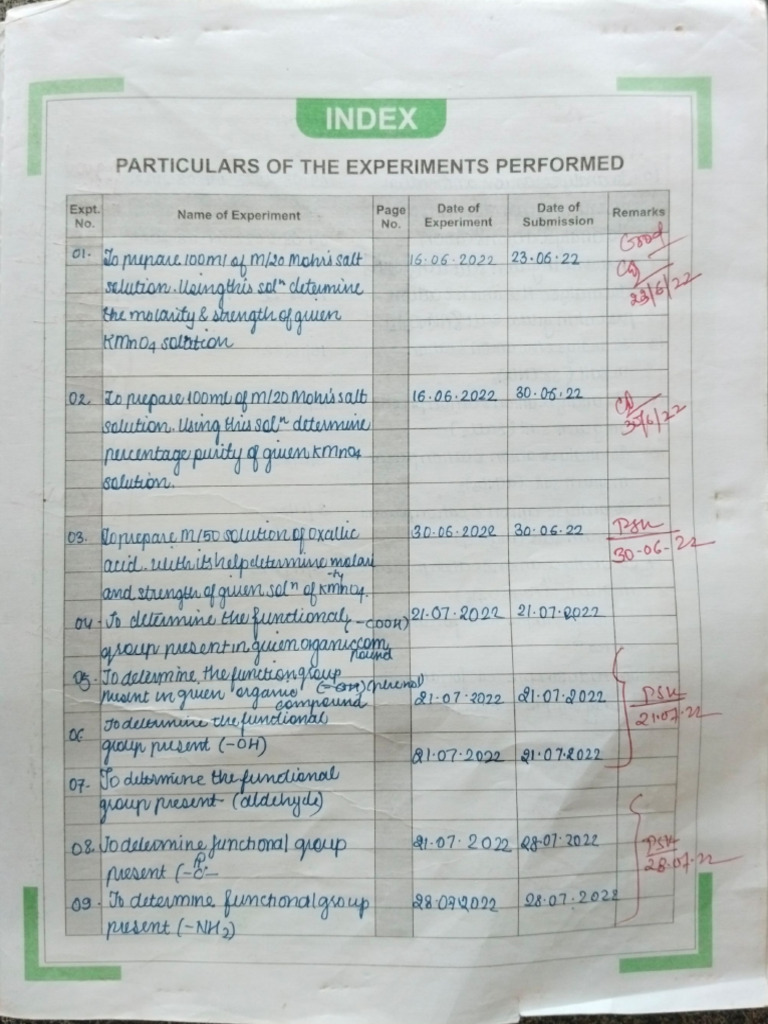 INDEX
PARTICULARS OF THE EXPERIMENTS PERFORMED
Expt. No. Name of Experiment Page No. Date of Experiment Date of Submission Remarks
01. To prepare 100ml of M/20 Mohr's salt 16.06.2022 23.06.22 Good
solution. Using this solⁿ determine 23/6/22
the molarity & strength of given
KMnO4 solution
02. To prepare 100ml of M/20 Mohr's salt 16.06.2022 30.06.22
solution. Using this solⁿ determine 30/6/22
percentage purity of given KMnO4
solution.
03. To prepare M/50 solution of Oxallic 30.06.2022 30.06.22 PSK
acid. With its help determine molari 30-06-22
-ty
and strength of given solⁿ of KMnO4.
04. To determine the functional (-COOH) 21.07.2022 21.07.2022
group present in given organic com
pound
05. To determine the function group
present in given organic (-OH) phenol 21.07.2022 21.07.2022 PSK
compound 21.07.22
06 To determine the functional
group present (-OH) 21.07.2022 21.07.2022
07. To determine the functional
group present (aldehyde)
08. To determine functional group 21.07.2022 28.07.2022 PSK
present 28.07.22
09. To determine functional group 28.07.2022 28.07.2022
present (-NH2)